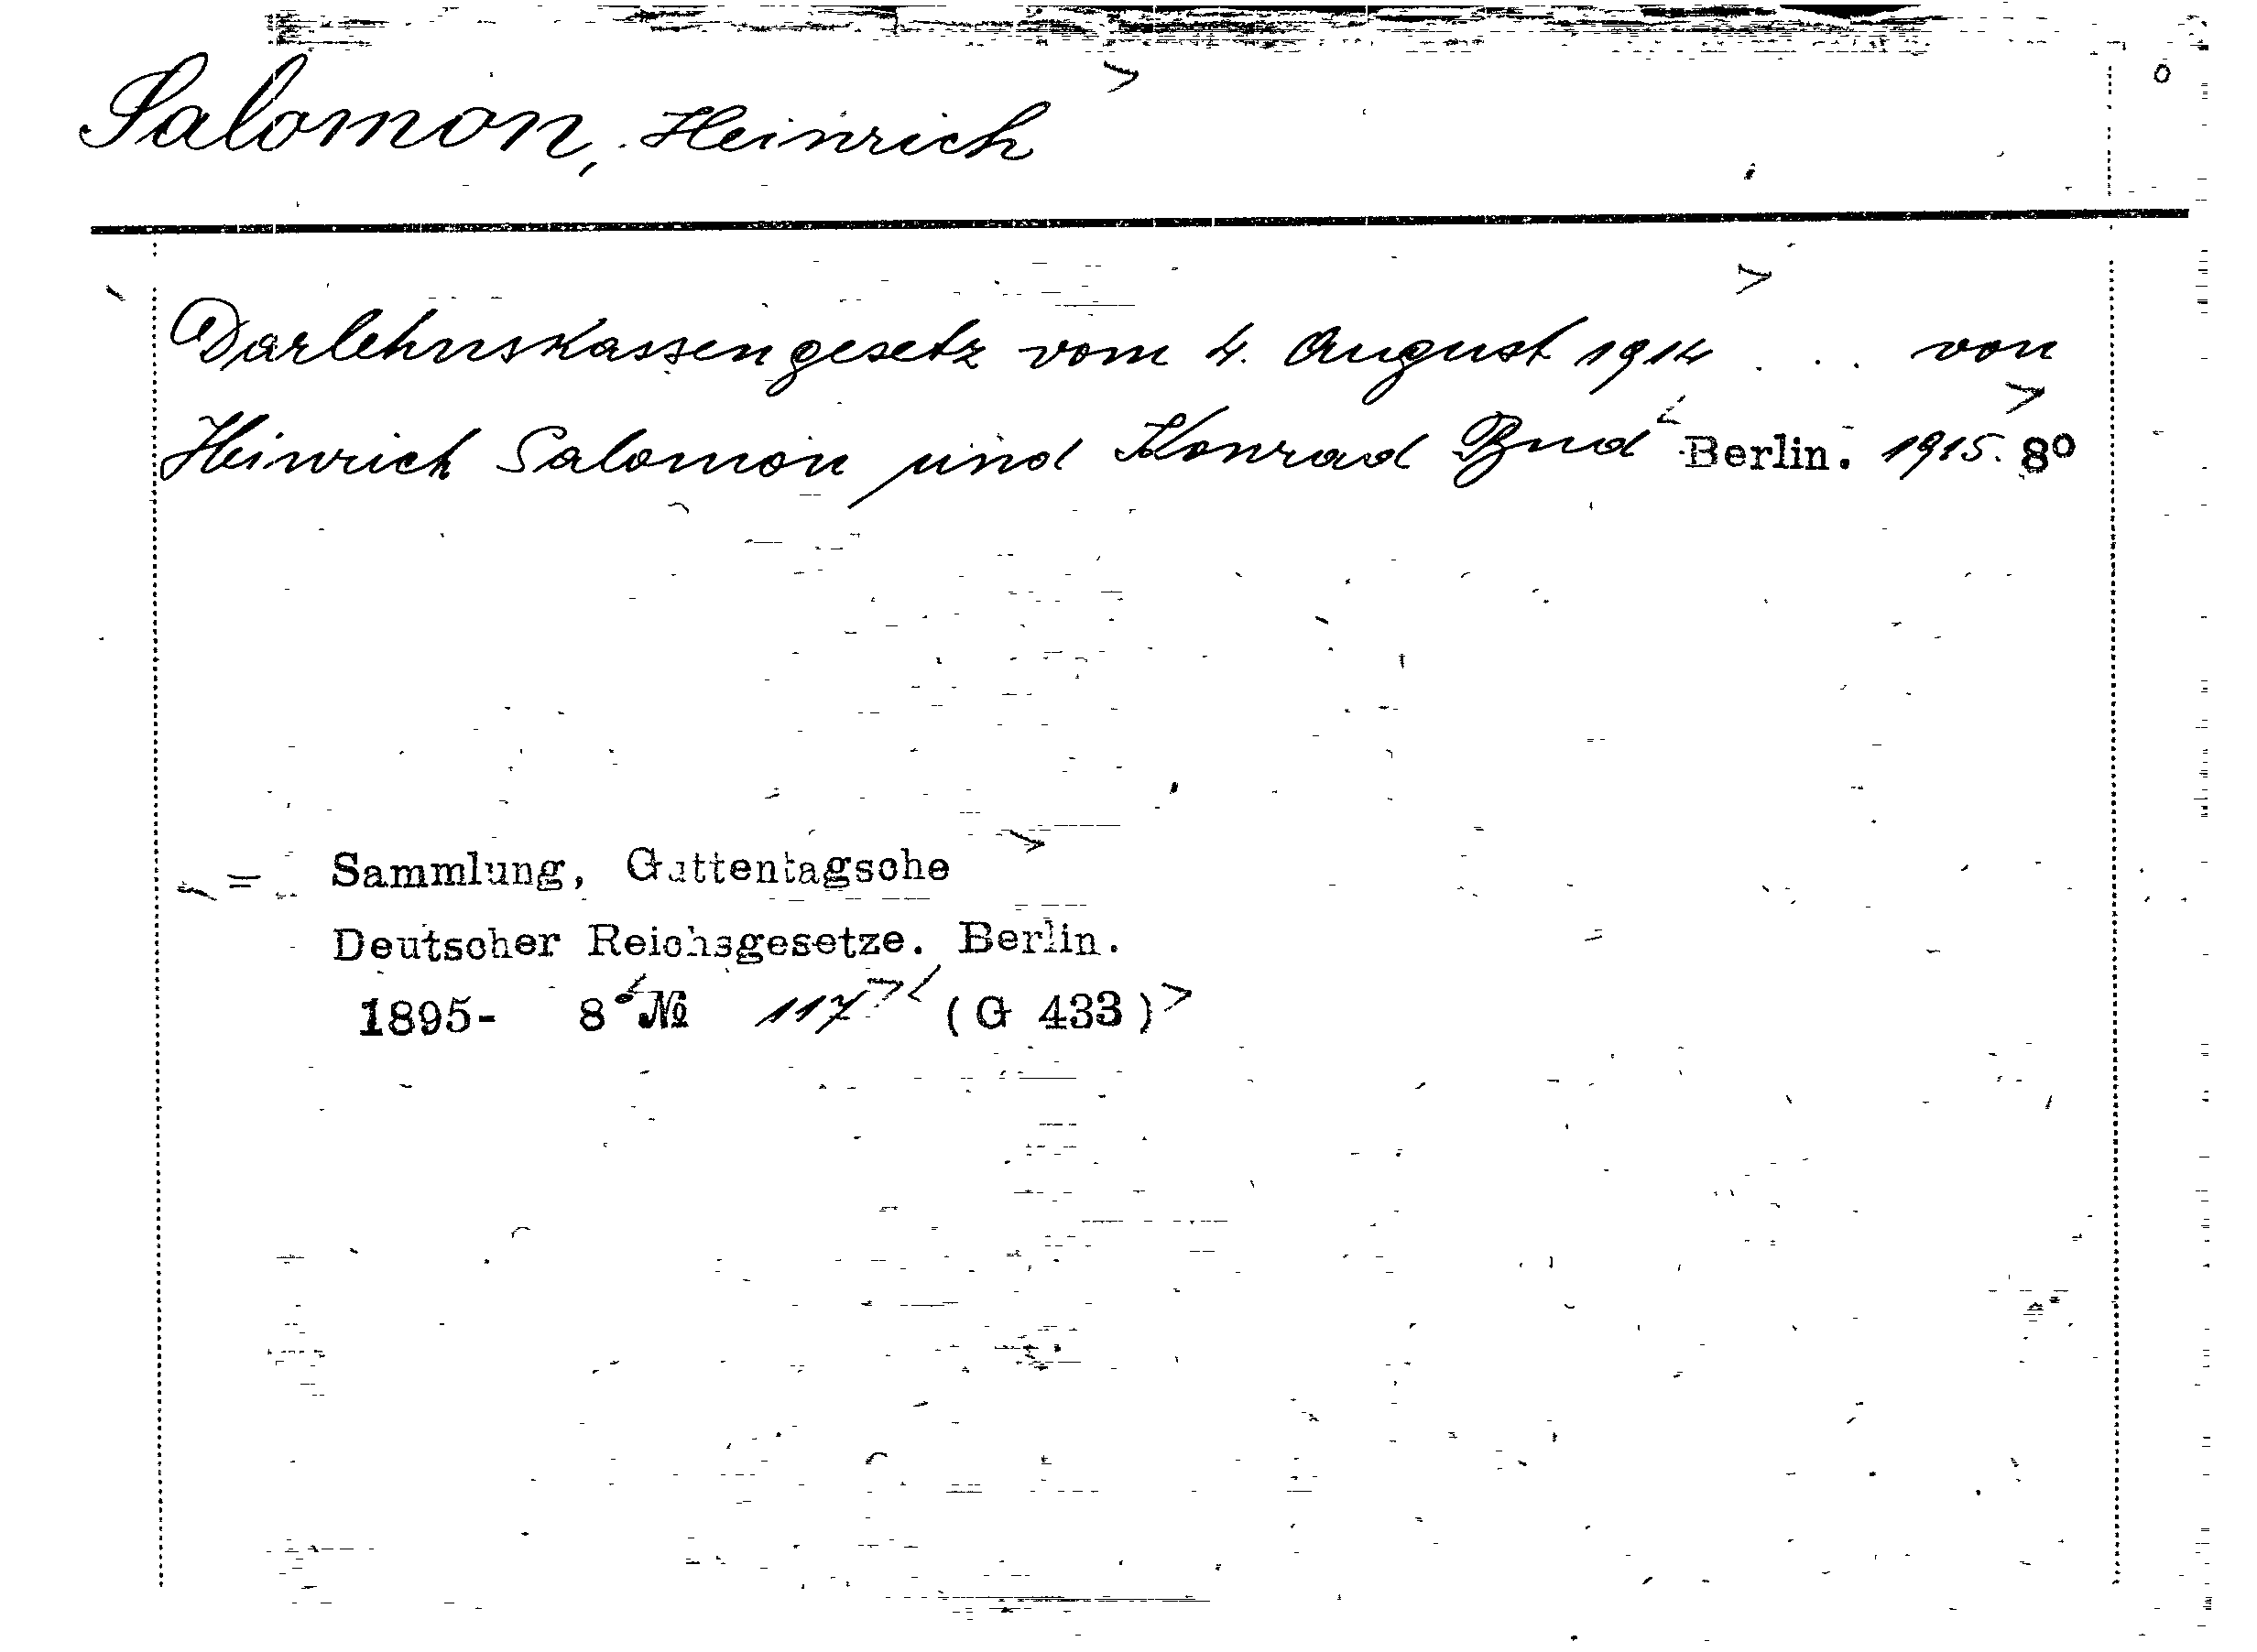 Salomon, Heinrich
Darlehnskassengesetz vom 4. August 1914 . . . von
Heinrich Salomon und Konrad Bud Berlin. 1915. 8°
= Sammlung, Guttentagsche
Deutscher Reichsgesetze. Berlin.
1895- 8° № 117 (G 433)